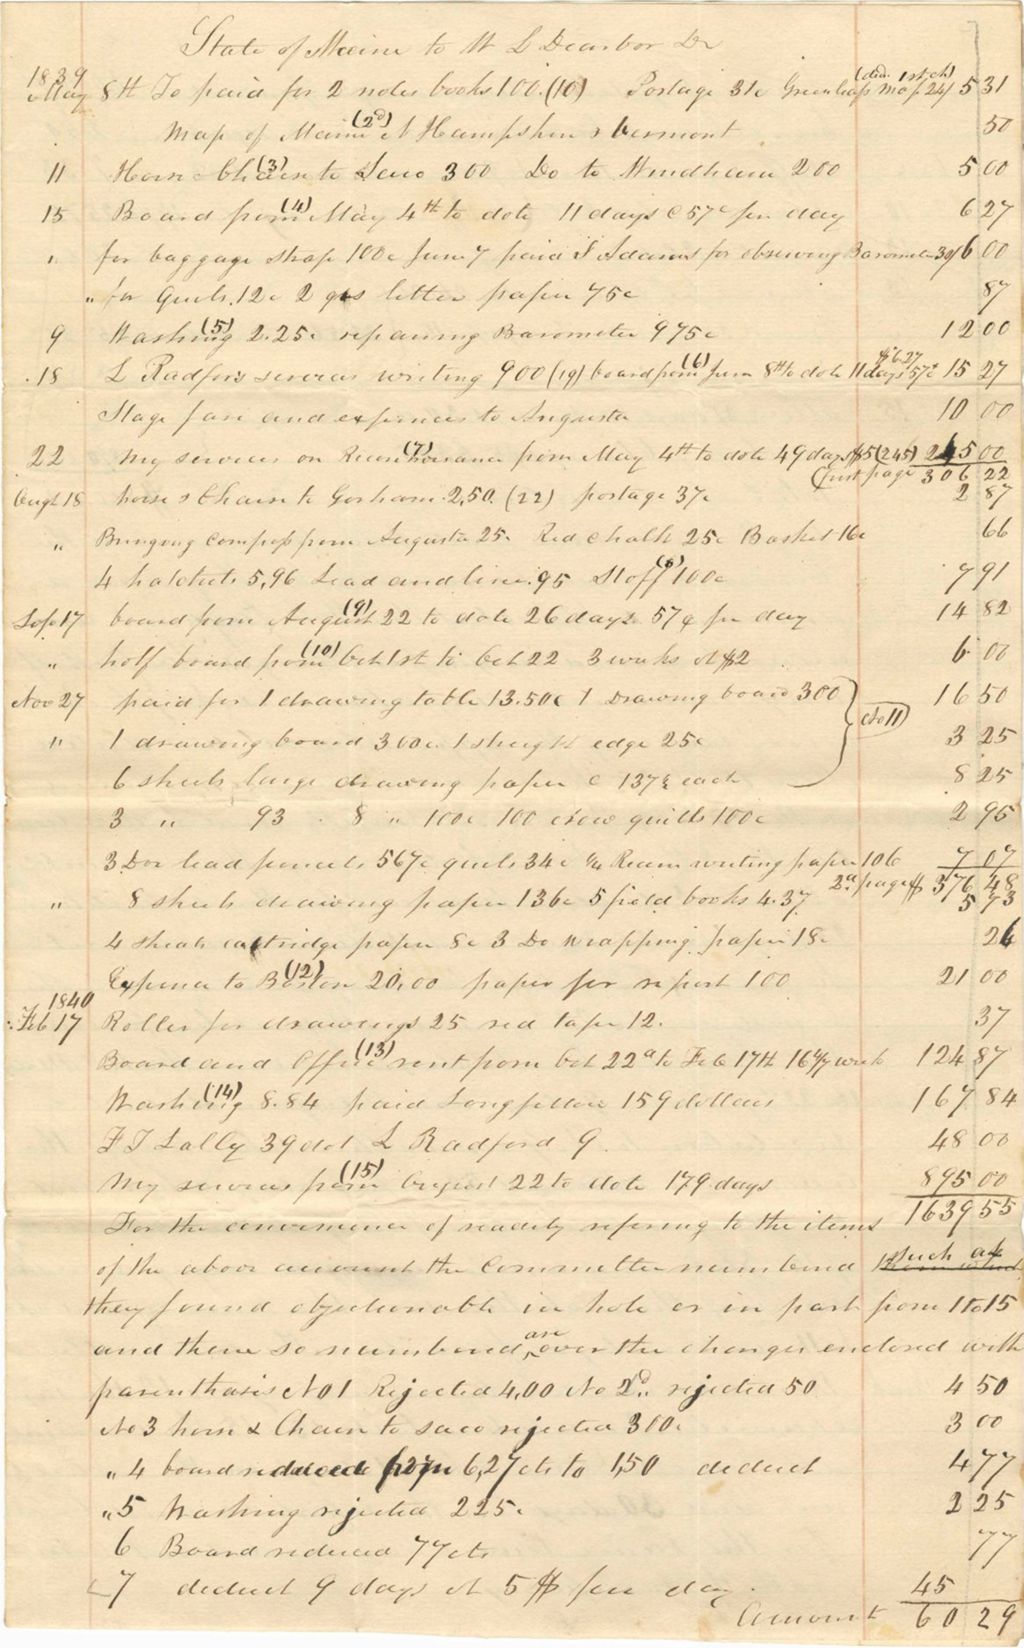 State of Maine to W L Dearbor Dr
1839
May 8th To paid for 2 notes books 100. (10) Postage 31c Greenleafs map 24/ (ded. 1st ch) 5 31
Map of Maine (2d) N Hampshire & Vermont 50
11 Horse & Chaise (3) to Saco 300 Do to Windham 200 5 00
15 Board from (4) May 4th to date 11 days @ 57c per day 6 27
" for baggage strap 100c June 7 paid S Adams for observing Barometer 30/ 6 00
" for Quils. 12c 2 qrs letter paper 75c 87
9 Washing (5) 2.25c repairing Barometer 975c 12 00
18 L Radfors services writing 900 (19) board from (6) 8th to date 11 days 57c $6.27 15 27
Stage fare and expences to Augusta 10 00
22 My services on Reconnoisance (7) from May 4th to date 49 days $5 (245) 245 00
(first page 306 22
Augt 18 horse & Chaise to Gorham. 2,50. (22) postage 37c 2 87
" Bringing Compass from Augusta 25. Red Chalk 25c Basket 16c 66
4 hatchets 5,96 Lead and line. 95 Staff (8) 100c 7 91
Sept 17 board from August (9) 22 to date 26 days 57¢ per day 14 82
" half board from (10) Oct 1st to Oct 22 3 weeks at $2 6 00
Nov 27 paid for 1 drawing table 13.50c 1 Drawing board 300 16 50
" 1 drawing board 300c. 1 straight edge 25c (No 11) 3 25
6 sheets large drawing paper @ 137½ each 8 25
3 " 93 8 " 100c 100 crow quills 100c 2 95
3 Doz lead pencils 567c quils 34c ¼ Ream writing paper 106 7 07
2d page $ 376 48
" 8 sheets drawing paper 136c 5 field books 4.37 5 73
4 sheets cartridge paper 8c 3 Do wrapping paper 18c 26
Expence to Boston (12) 20,00 paper for report 100 21 00
1840
Feb 17 Roller for drawings 25 red tape 12. 37
Board and Office (13) rent from Oct 22d to Feb 17th 16 6/7 week 124 87
Washing (14) 8.84 paid Longfellow 159 dollars 167 84
F T Lally 39 dol L Radford 9. 48 00
My services from (15) August 22 to date 179 days 895 00
For the convenience of readily refering to the items 1639 55
of the above account the Committee numbered such as
they found objectionable in hole or in part from 1 to 15
and these so numbered are over the charges enclosed with
parenthasis No 1 Rejected 4,00 No 2d. rejected 50 4 50
No 3 horse & Chaise to saco rejected 300c 3 00
" 4 board reduced from 6,27 cts to 1,50 deduct 4 77
" 5 Washing rejected 225c 2 25
6 Board reduced 77 cts 77
7 deduct 9 days at 5 $ per day. 45
Amount 60 29